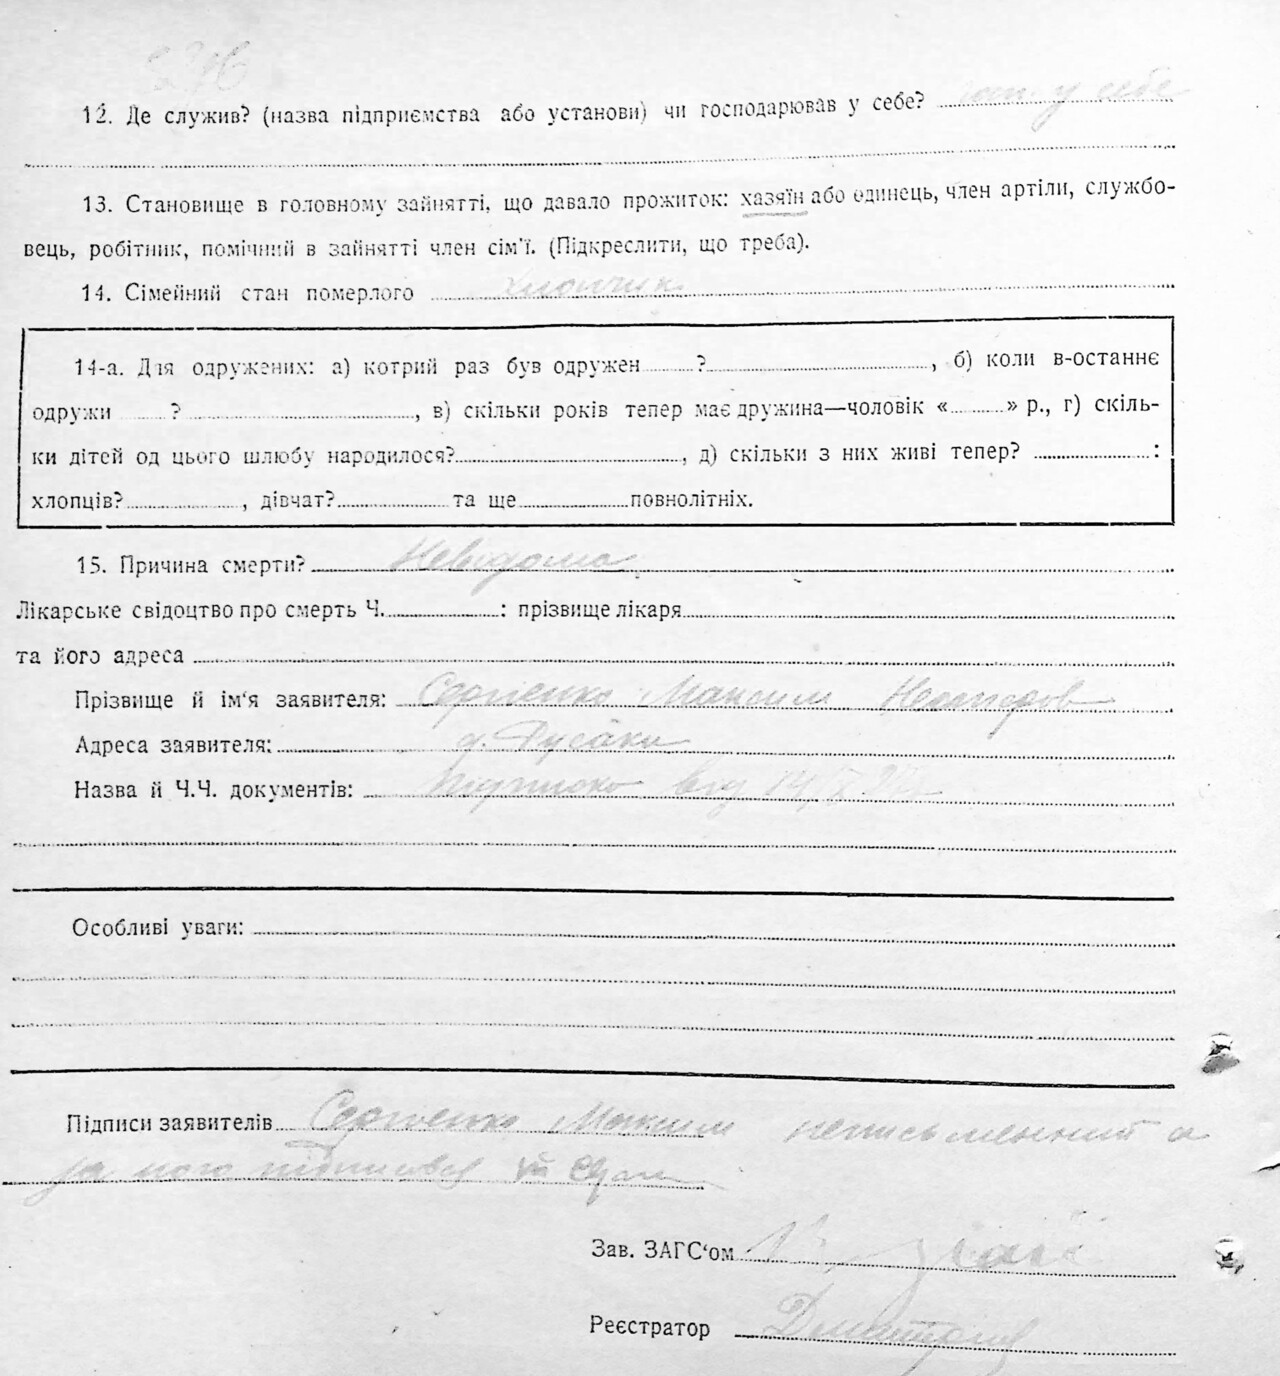 12. Де служив? (назва підприємства або установи) чи господарював у себе? у себе
13. Становище в головному зайнятті, що давало прожиток: хазяїн або одинець, член артіли, службо-
вець, робітник, помічний в зайнятті член сім'ї. (Підкреслити, що треба).
14. Сімейний стан померлого хлопчик
14-а. Для одружених: а) котрий раз був одружен ? , б) коли в-останнє
одружи ? , в) скільки років тепер має дружина—чоловік « » р., г) скіль-
ки дітей од цього шлюбу народилося? , д) скільки з них живі тепер? :
хлопців? , дівчат? та ще повнолітніх.
15. Причина смерти? Невідома
Лікарське свідоцтво про смерть Ч. : прізвище лікаря
та його адреса
Прізвище й ім'я заявителя: Сергієнко Максим
Адреса заявителя: Русаки
Назва й Ч.Ч. документів: від 14/
Особливі уваги:
Підписи заявителів Сергієнко Максим неписьменний а
за його підписався
Зав. ЗАГС'ом
Реєстратор